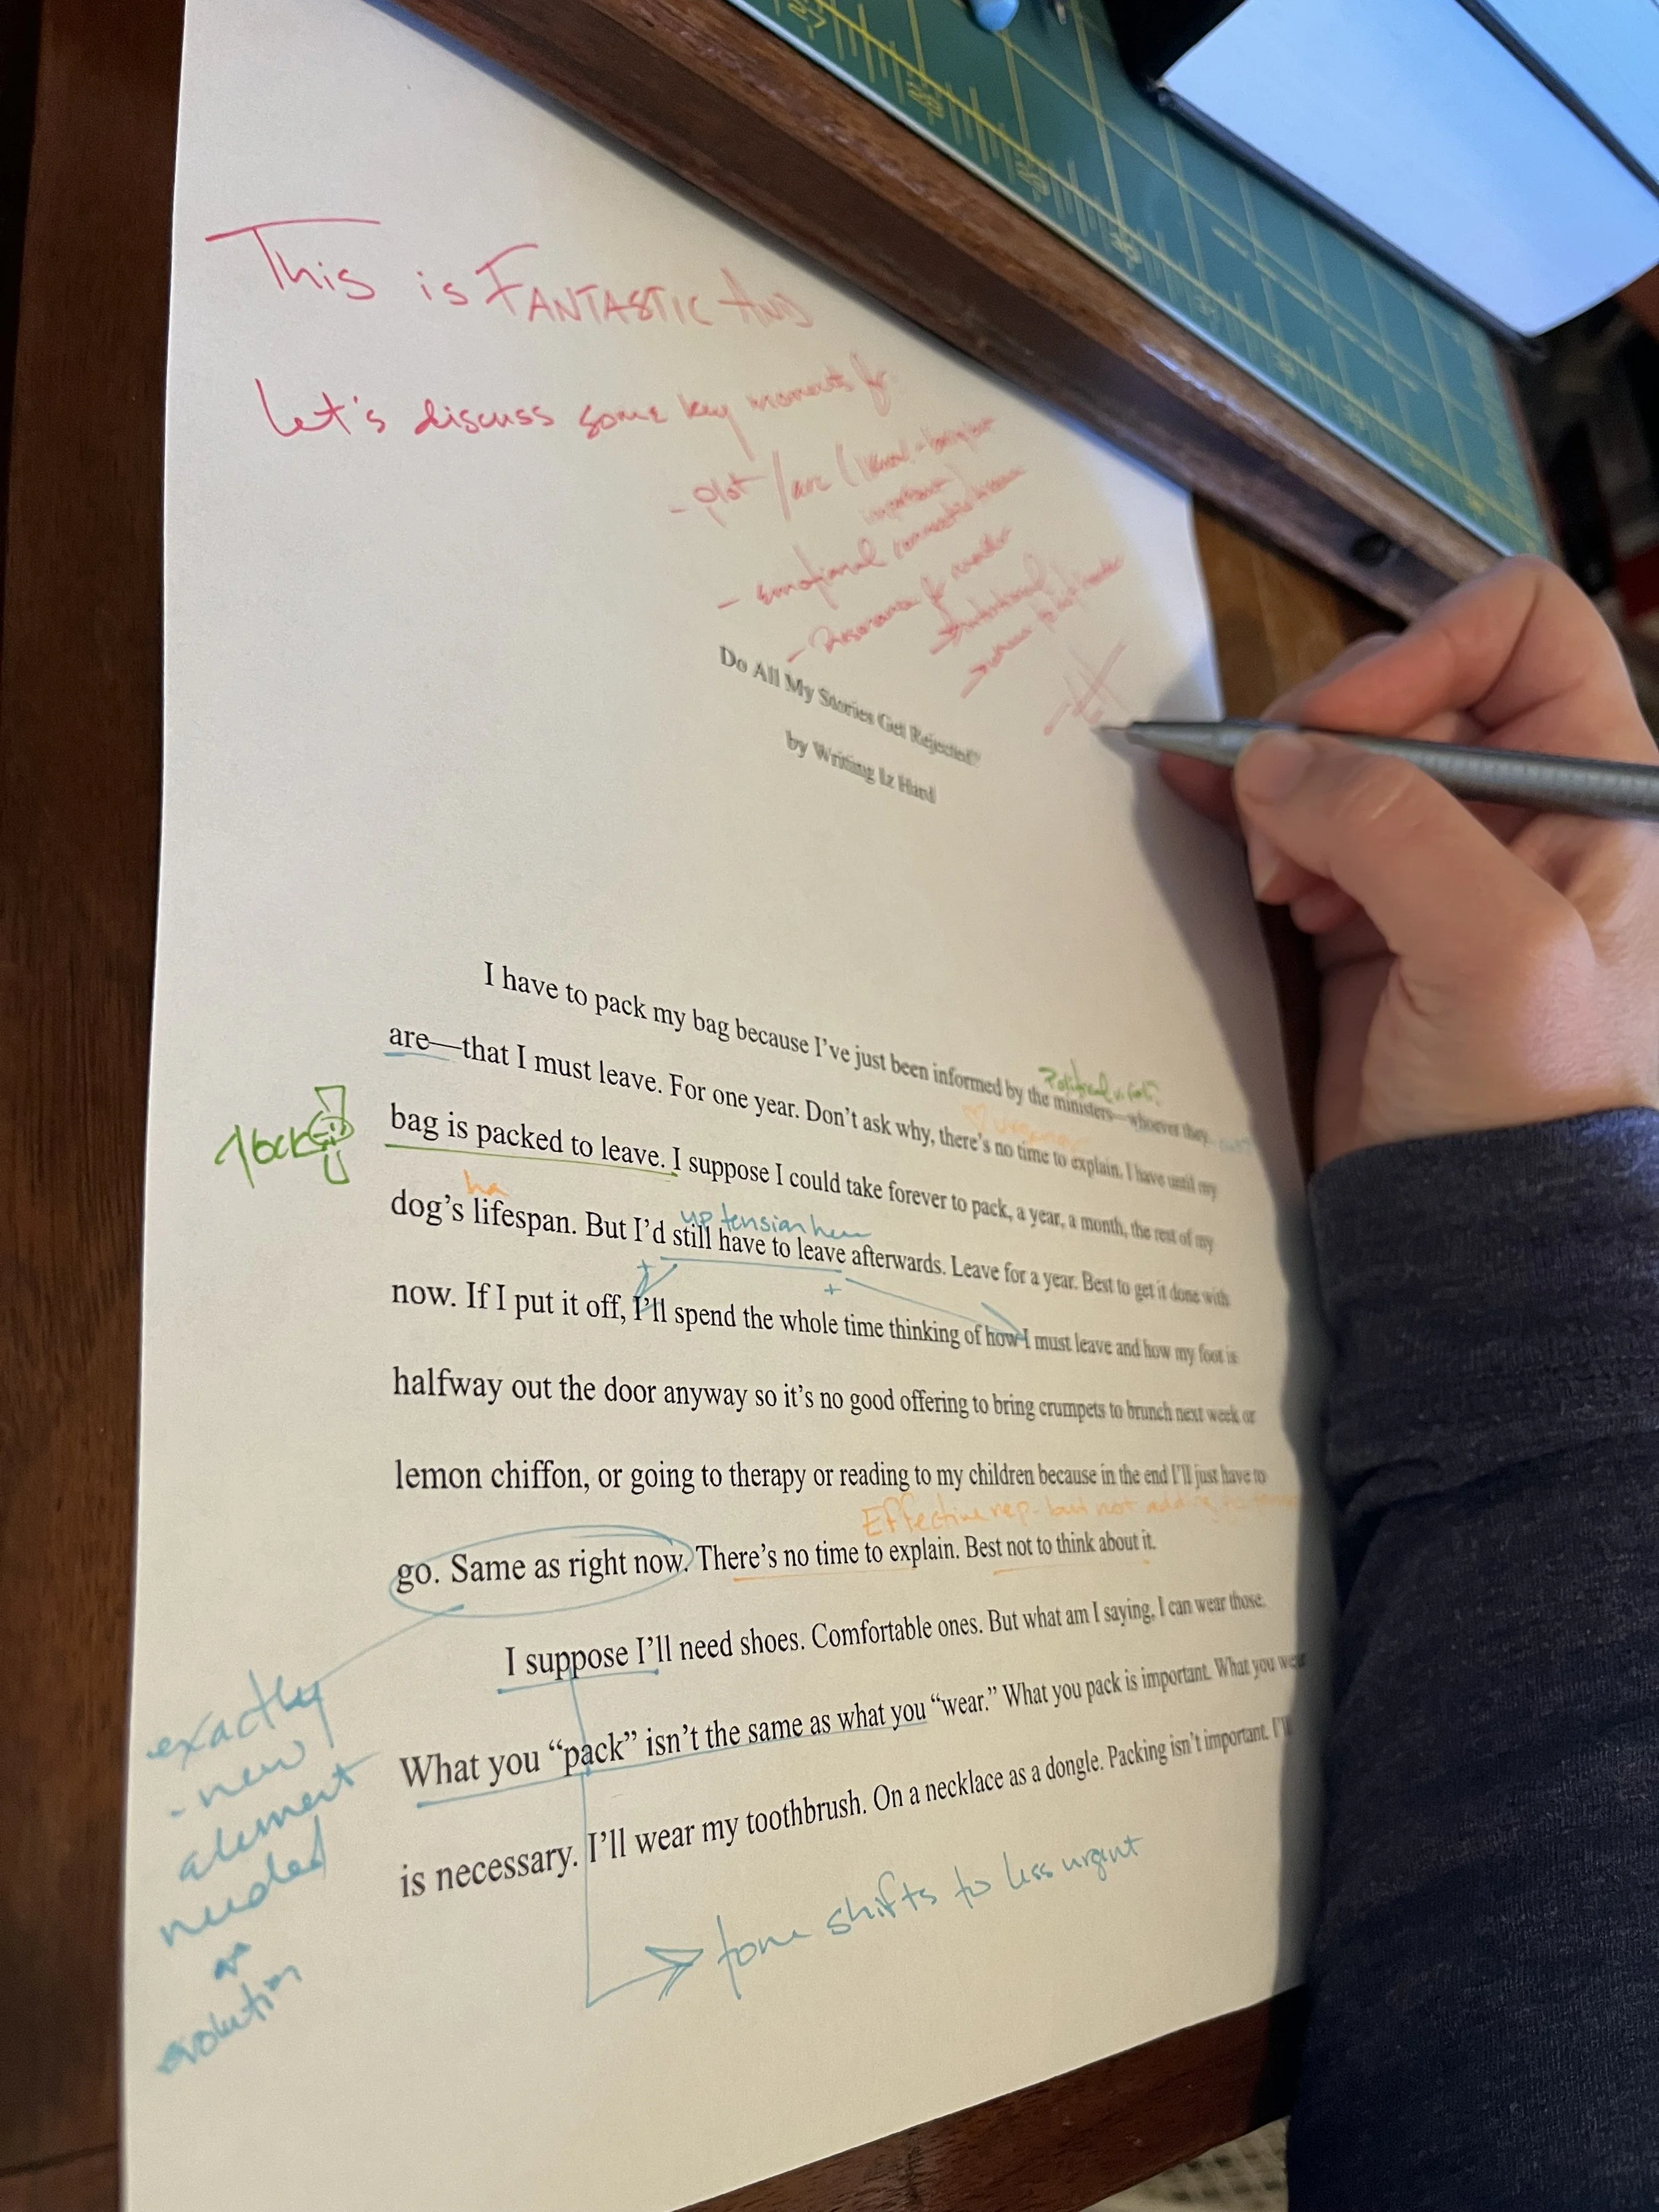 This is FANTASTIC AND
Let's discuss some key moments for
- plot / arc (
important)
- emotional
- Resonance for reader
Do All My Stories Get Rejected?
by Writing Iz Hard
I have to pack my bag because I've just been informed by the ministers—whoever they
Political
are—that I must leave. For one year. Don't ask why, there's no time to explain. I have until my
urgency
clock
bag is packed to leave. I suppose I could take forever to pack, a year, a month, the rest of my
ha
dog's lifespan. But I'd still have to leave afterwards. Leave for a year. Best to get it done with
up tension here
now. If I put it off, I'll spend the whole time thinking of how I must leave and how my foot is
halfway out the door anyway so it's no good offering to bring crumpets to brunch next week or
lemon chiffon, or going to therapy or reading to my children because in the end I'll just have to
Effective rep. but not adding
go. Same as right now. There's no time to explain. Best not to think about it.
I suppose I'll need shoes. Comfortable ones. But what am I saying, I can wear those.
What you "pack" isn't the same as what you "wear." What you pack is important. What you wear
is necessary. I'll wear my toothbrush. On a necklace as a dongle. Packing isn't important. I'll
exactly
- new
element
needed
or
evolution
tone shifts to less urgent